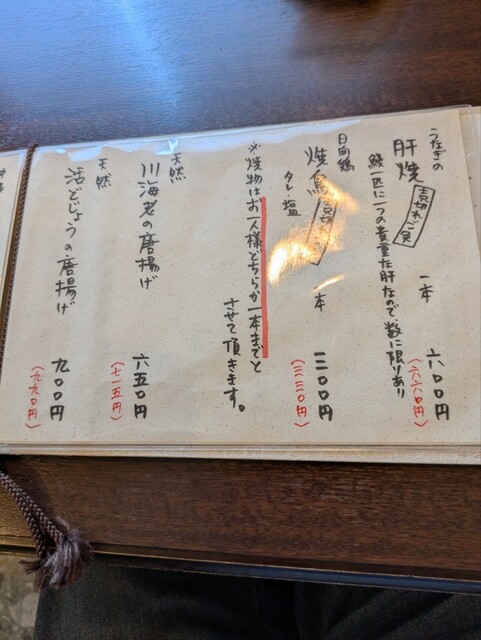 うなぎの
肝焼 売切れご免 一本 六〇〇円
(六六〇円)
鰻一匹に一つの貴重な肝なので、数に限りあり
日向鶏
焼鳥 一本 三〇〇円
(三三〇円)
タレ・塩
※焼物はお一人様どちらか一本までと
させて頂きます。
天然
川海老の唐揚げ 六五〇円
(七一五円)
天然
活どじょうの唐揚げ 九〇〇円
(九九〇円)